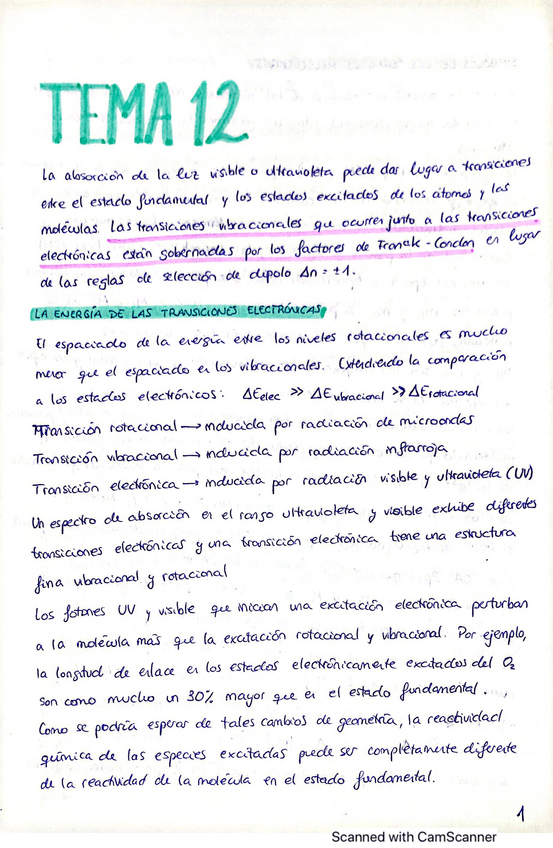 TEMA 12
La absorción de la luz visible o ultravioleta puede dar lugar a transiciones
entre el estado fundamental y los estados excitados de los átomos y las
moléculas. Las transiciones vibracionales que ocurren junto a las transiciones
electrónicas están gobernadas por los factores de Franak-Condon en lugar
de las reglas de selección de dipolo Δn = ±1.
LA ENERGÍA DE LAS TRANSICIONES ELECTRÓNICAS
El espaciado de la energía entre los niveles rotacionales es mucho
menor que el espaciado en los vibracionales. Extendiendo la comparación
a los estados electrónicos: ΔEelec >> ΔEvibracional >> ΔErotacional
Transición rotacional → inducida por radiación de microondas
Transición vibracional → inducida por radiación infrarroja
Transición electrónica → inducida por radiación visible y ultravioleta (UV)
Un espectro de absorción en el rango ultravioleta y visible exhibe diferentes
transiciones electrónicas y una transición electrónica tiene una estructura
fina vibracional y rotacional
Los fotones UV y visible que inician una excitación electrónica perturban
a la molécula más que la excitación rotacional y vibracional. Por ejemplo,
la longitud de enlace en los estados electrónicamente excitados del O₂
son como mucho un 30% mayor que en el estado fundamental.
Como se podría esperar de tales cambios de geometría, la reactividad
química de las especies excitadas puede ser completamente diferente
de la reactividad de la molécula en el estado fundamental.
1
Scanned with CamScanner